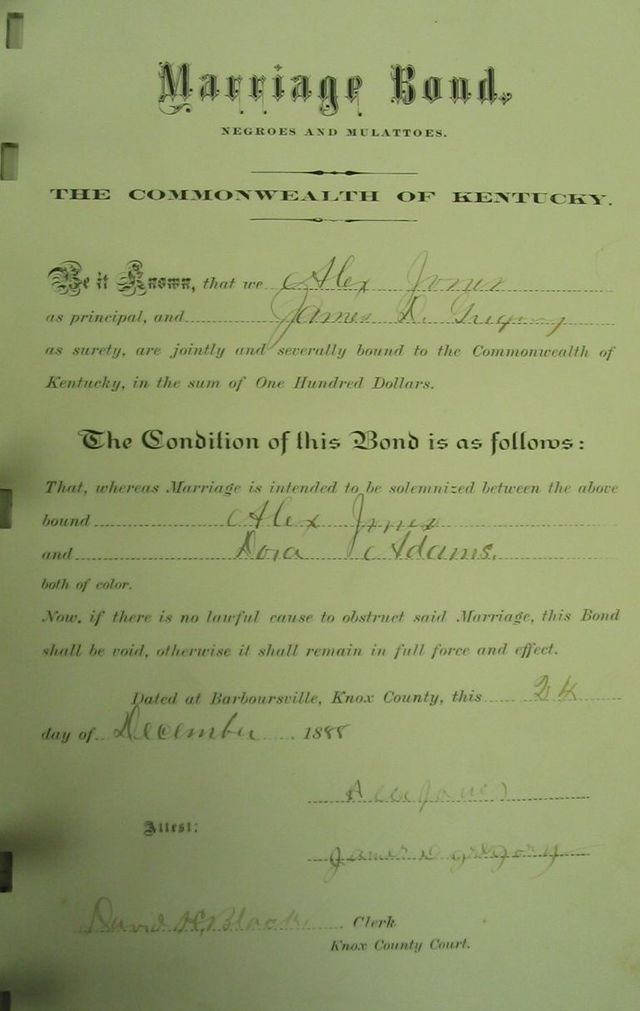 Marriage Bond.
NEGROES AND MULATTOES.
THE COMMONWEALTH OF KENTUCKY.
Be it Known, that we Alex Jones
as principal, and James D. Gregory
as surety, are jointly and severally bound to the Commonwealth of
Kentucky, in the sum of One Hundred Dollars.
The Condition of this Bond is as follows:
That, whereas Marriage is intended to be solemnized between the above
bound Alex Jones
and Dora Adams.
both of color.
Now, if there is no lawful cause to obstruct said Marriage, this Bond
shall be void, otherwise it shall remain in full force and effect.
Dated at Barboursville, Knox County, this
day of December 1888
Alex Jones
Attest:
James D Gregory
David H. Black Clerk
Knox County Court.